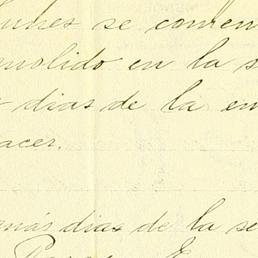 lunes se comen
molido en la s
dias de la en
acer.
más dias de la se